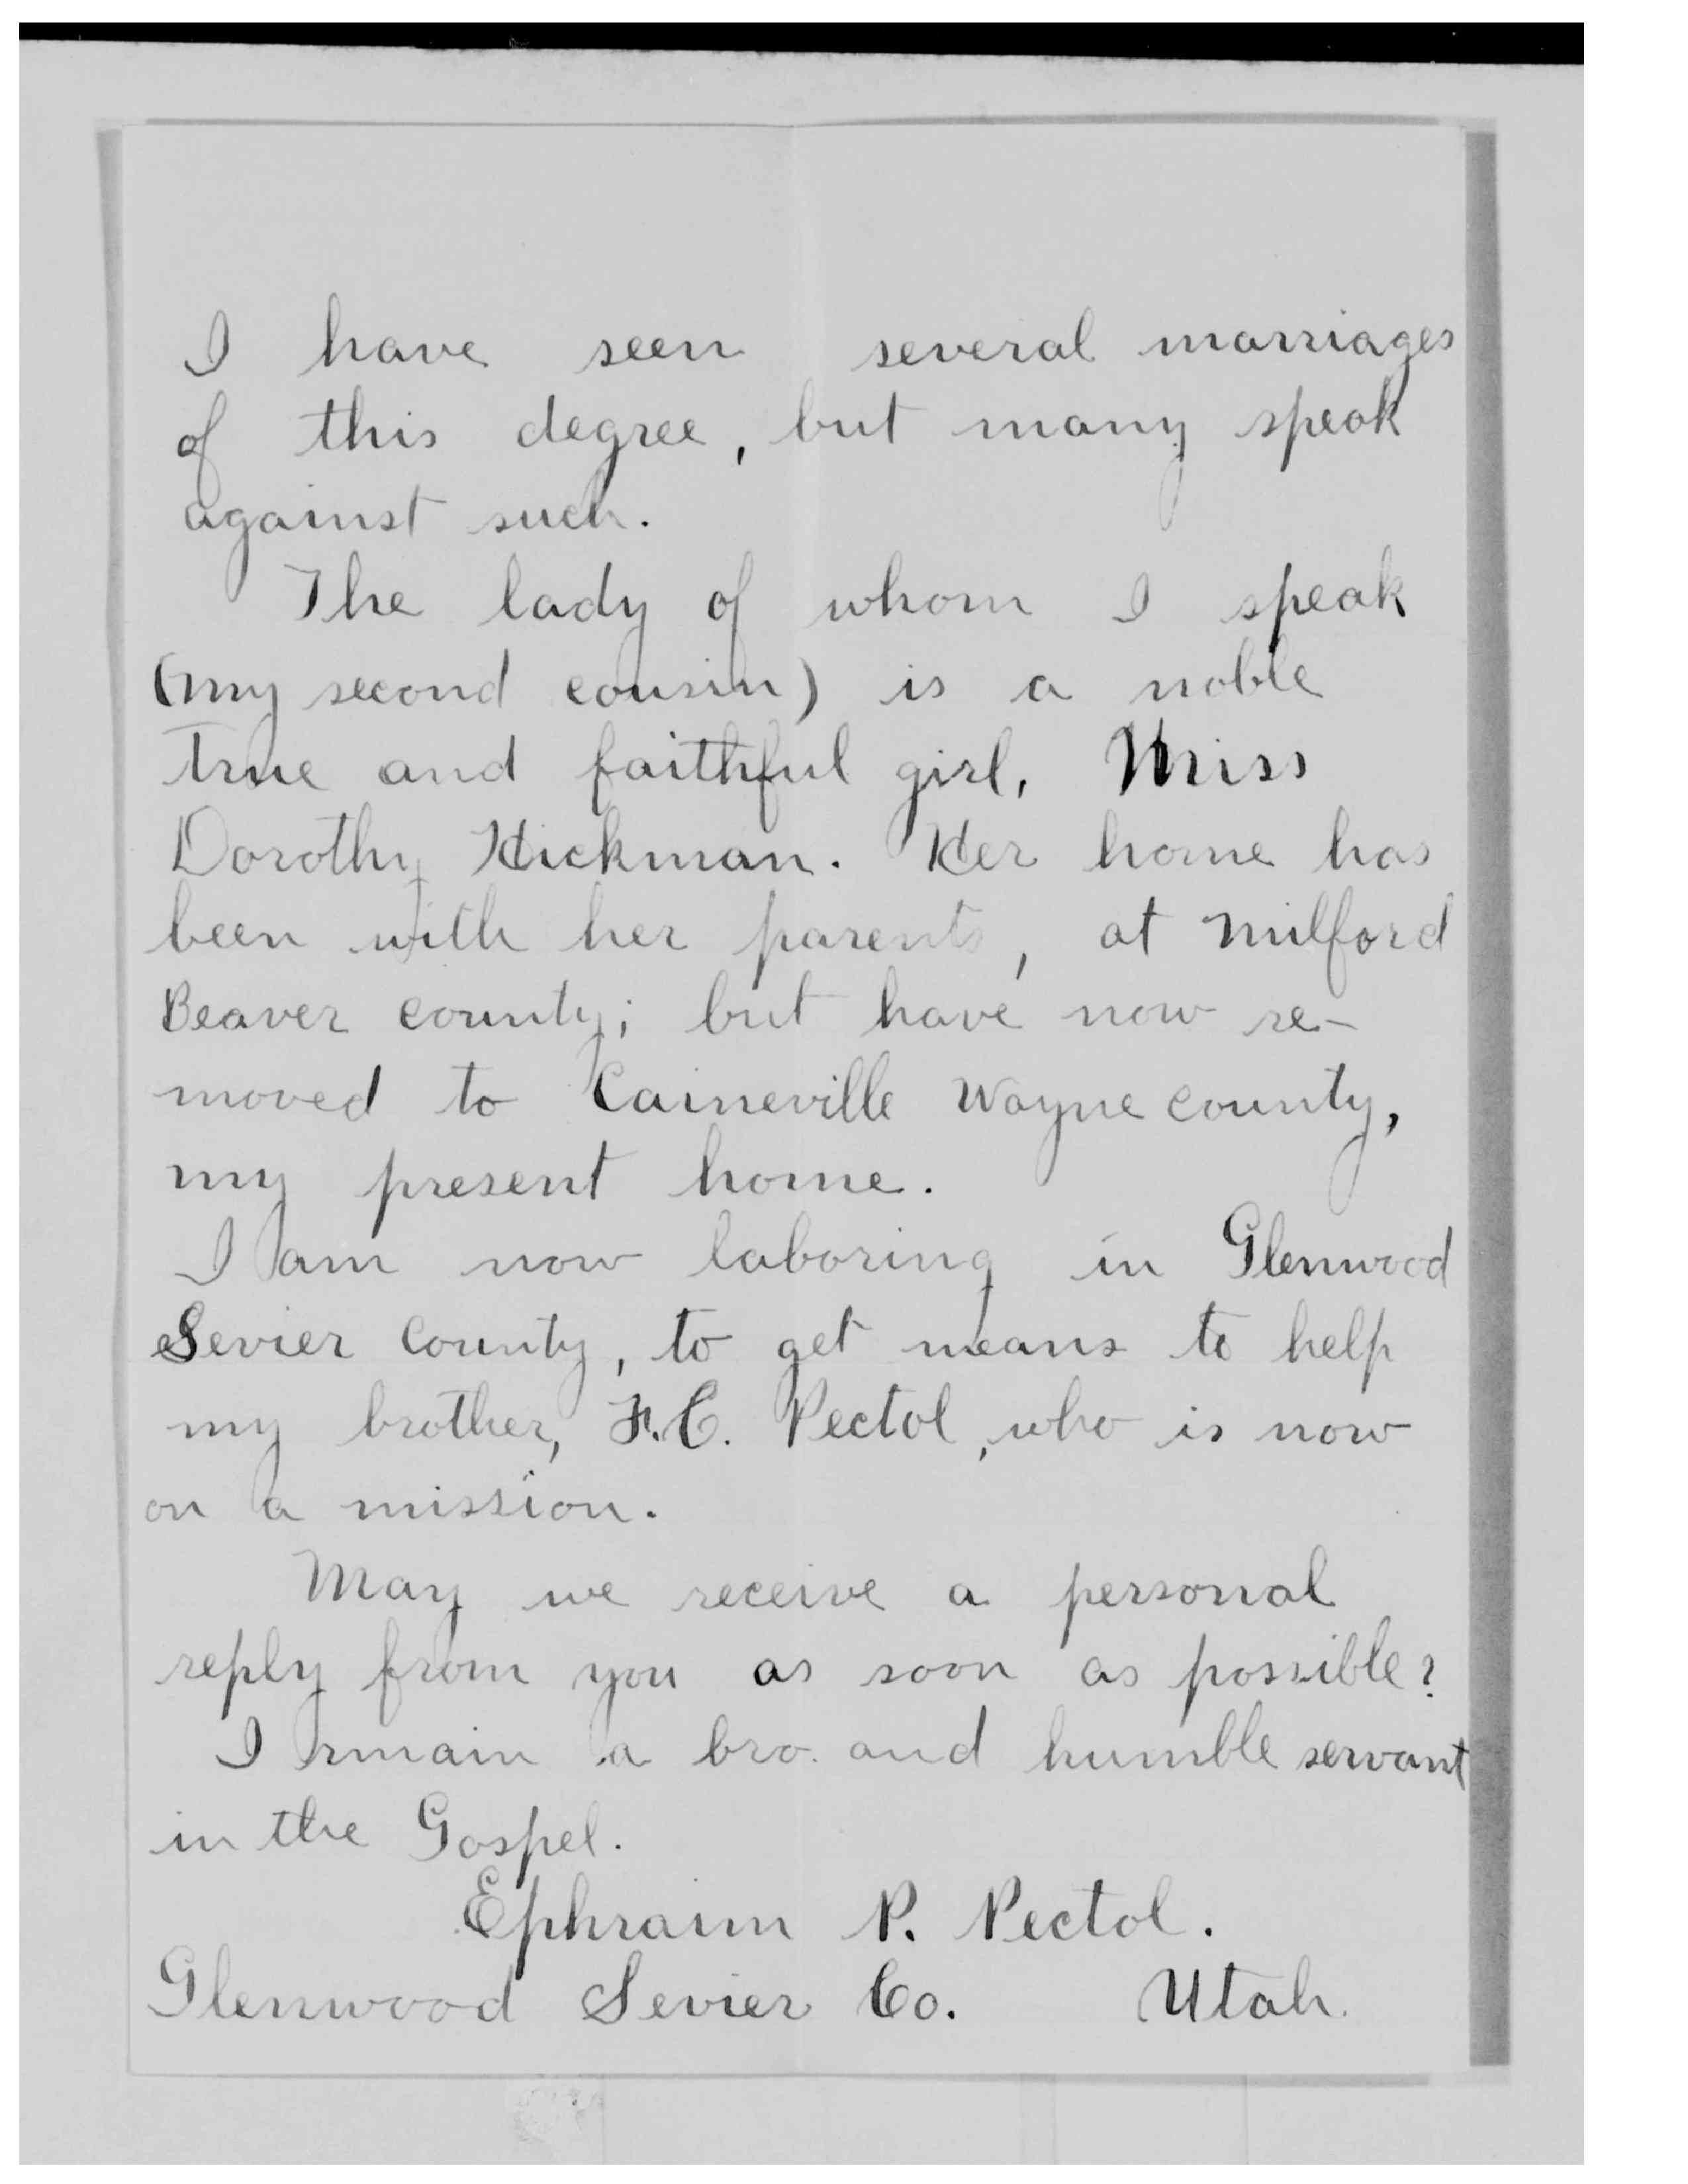 I have seen several marriages
of this degree, but many speak
against such.
The lady of whom I speak
(my second cousin) is a noble
true and faithful girl, Miss
Dorothy Hickman. Her home has
been with her parents, at Milford
Beaver county; but have now re-
moved to Caineville Wayne county,
my present home.
I am now laboring in Glenwood
Sevier County, to get means to help
my brother, F.C. Pectol, who is now
on a mission.
May we receive a personal
reply from you as soon as possible?
I rmain a bro. and humble servant
in the Gospel.
Ephraim P. Pectol.
Glenwood Sevier Co. Utah.